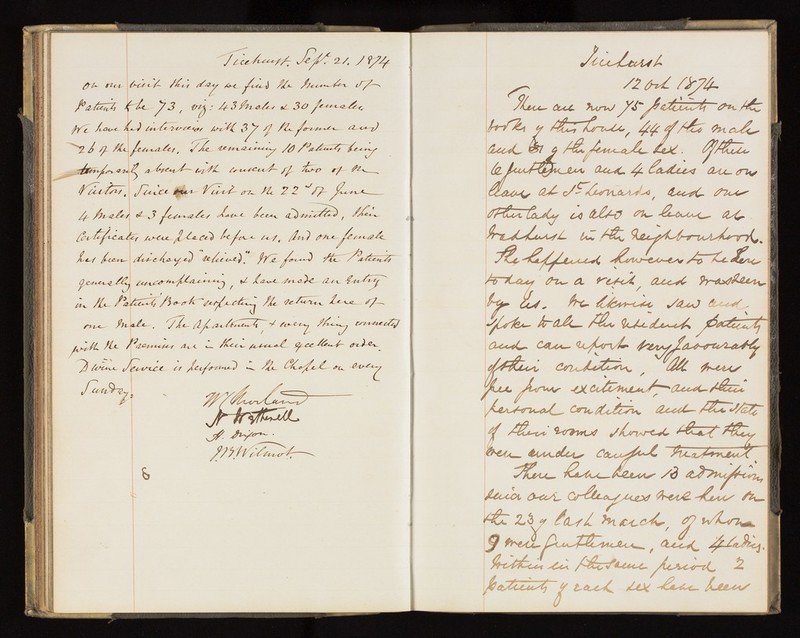 Ticehurst. Sept. 21. 1874
On our visit this day we find the Number of
Patients to be 73, viz: 43 Males & 30 females
We have had interviews with 37 of the former and
26 of the females. The remaining 10 Patients being
temporarily absent with consent of two of the
Visitors. Since our Visit on the 22nd of June
4 Males & 3 females have been admitted, their
Certificates were placed before us. And one female
has been discharged "relieved". We found the Patients
generally uncomplaining, & have made an Entry
in the Patients Book respecting the return here of
one Male. The Apartments, & every thing connected
with the Premises are in their usual excellent order.
Divine Service is performed in the Chapel on every
Sunday.
H. Dixon.
8
Ticehurst
12 Oct 1874
There are now 75 patients on the
books of this house, 44 of the male
and 31 of the female sex. Of these
6 gentlemen and 4 ladies are on
leave at St. Leonards, and one
other lady is also on leave at
Wadhurst in the neighbourhood.
She happened however to be here
today on a visit, and was seen
by us. We likewise saw and
spoke to all the resident patients
and can report very favourably
of their condition, All were
free from excitement, and their
personal condition and the state
of their rooms showed that they
were under careful treatment
There have been 13 admissions
since our colleagues were here on
the 23 of last March, of whom
9 were gentlemen, and 4 ladies.
Within the same period 2
patients of each sex have been